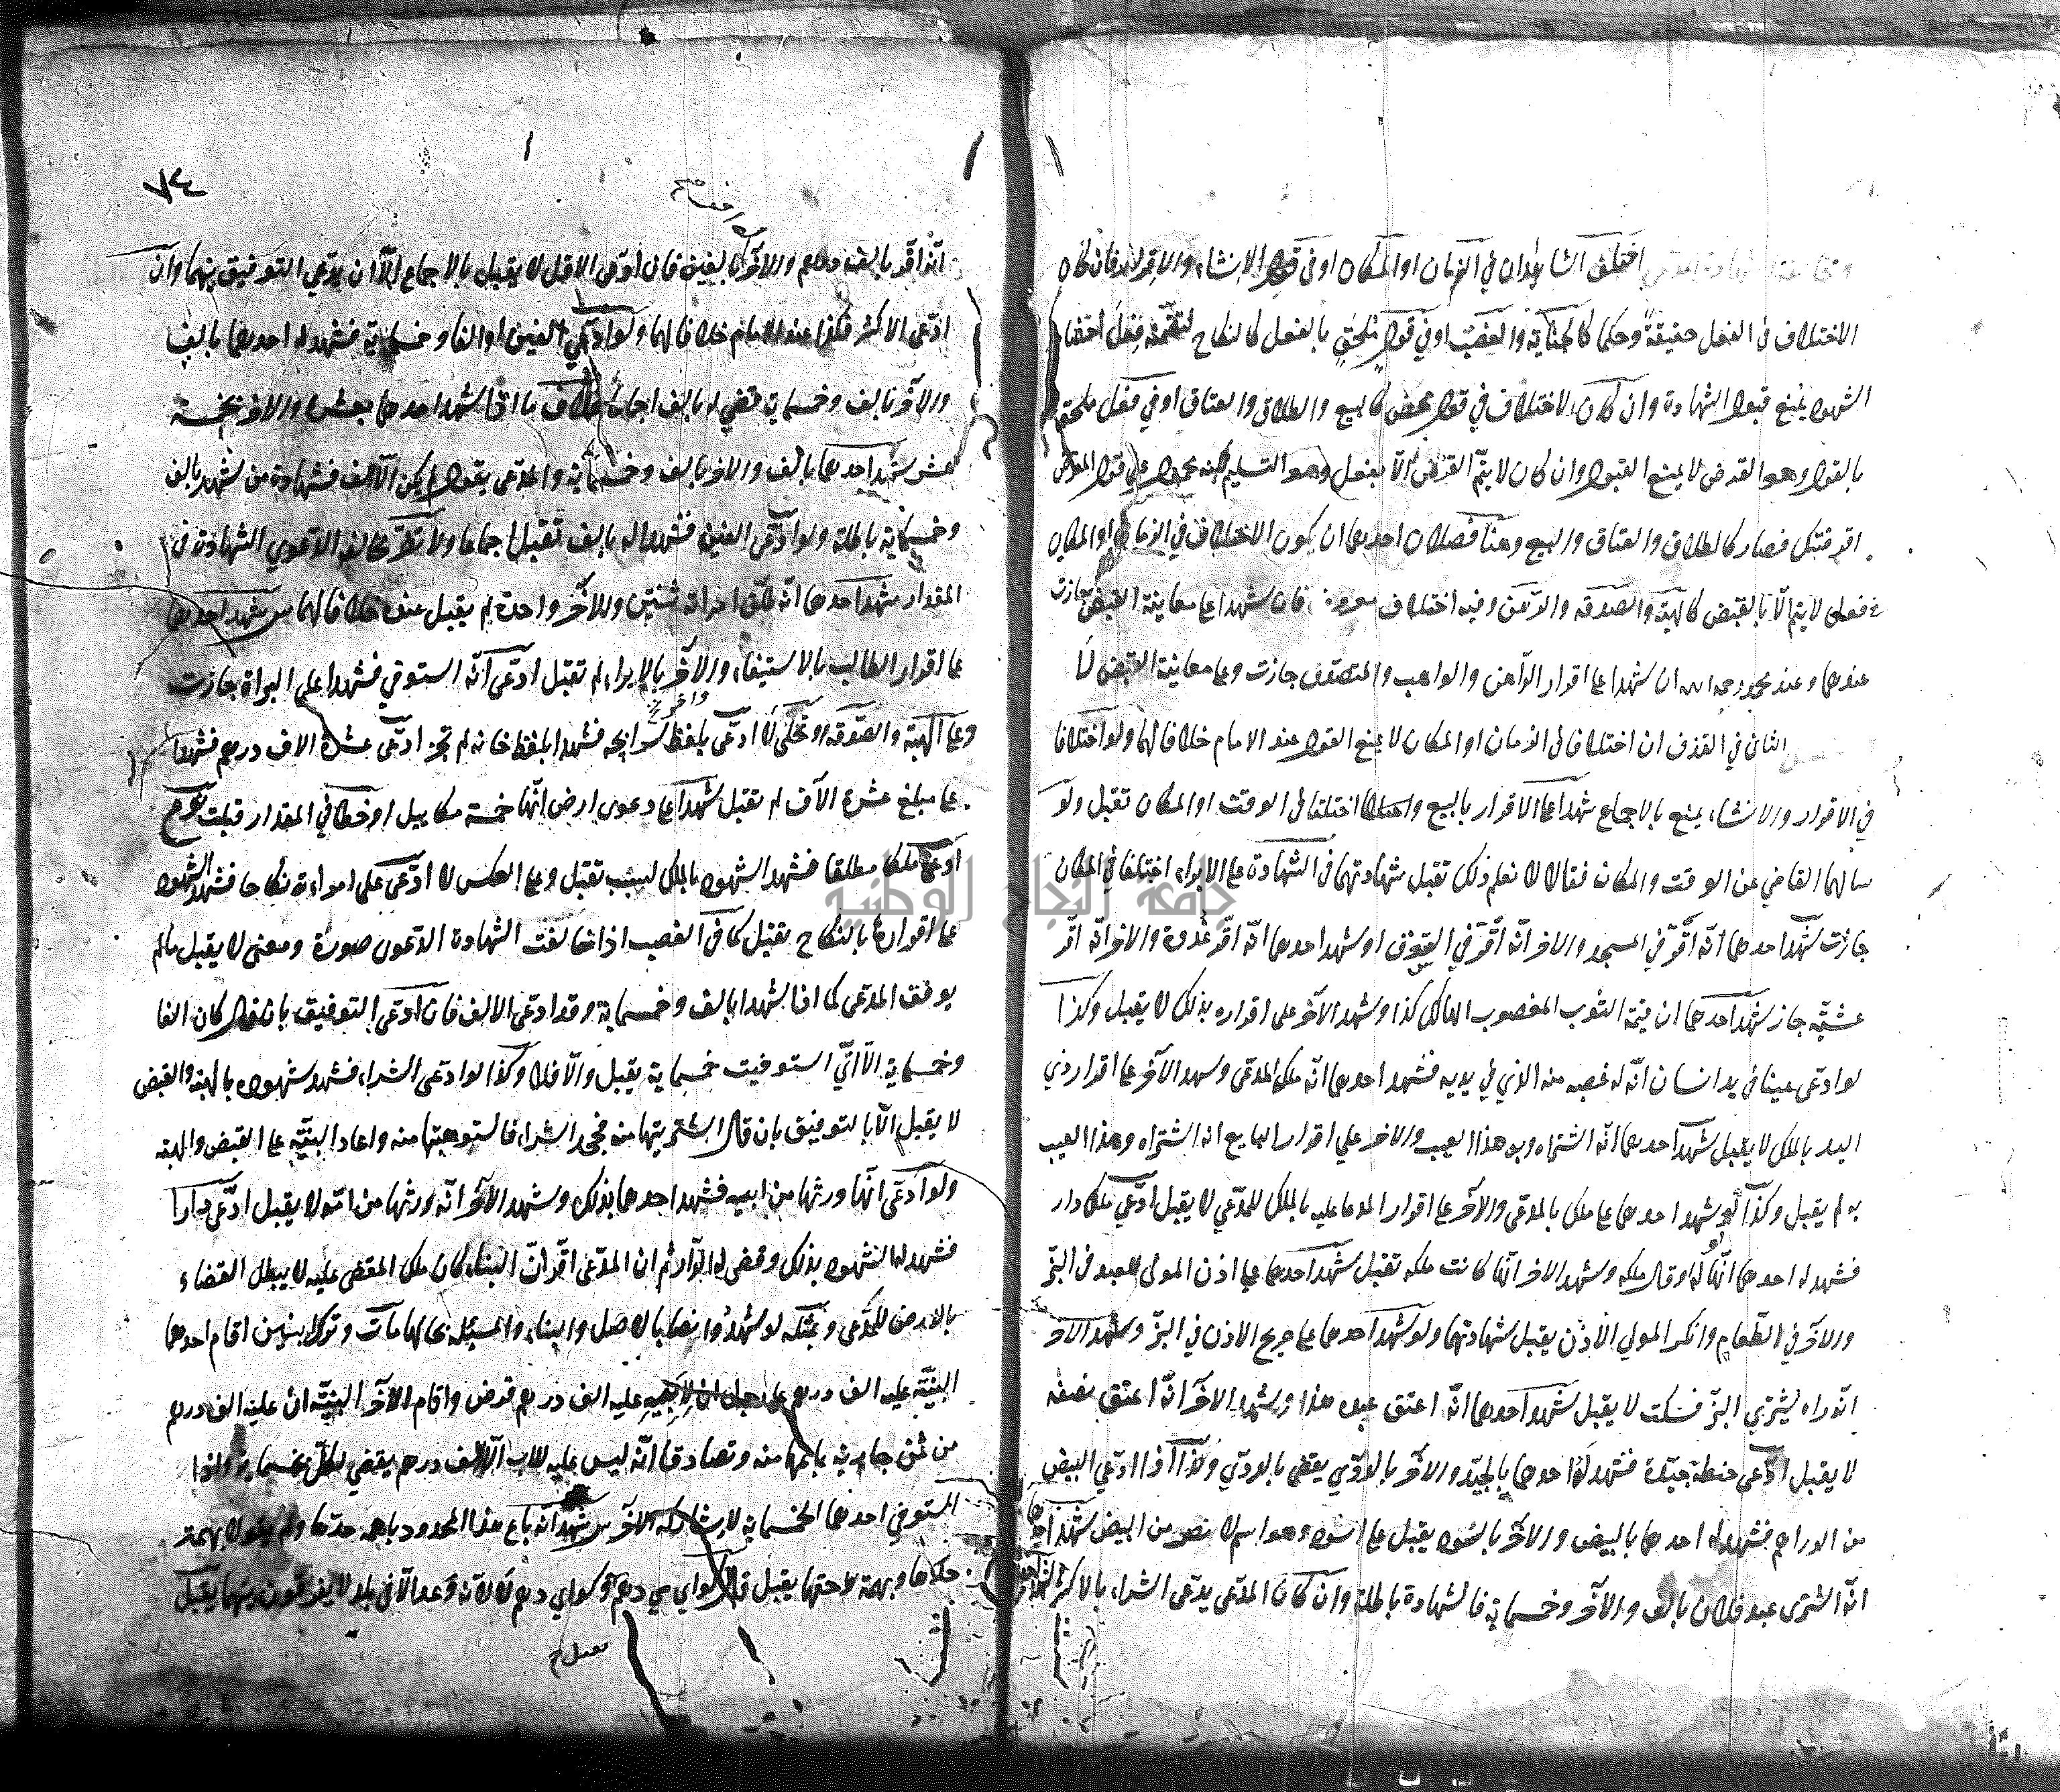 اختلف الشاهدان في الزمان او المكان او في قول الانشاء والاقرار فان كان
الاختلاف في الفعل حقيقة وحكما كالجناية والغصب او في قول ملحق بالفعل كالنكاح لتضمنه فعل احضار
الشهود يمنع قبول الشهادة وان كان الاختلاف في قول محض كالبيع والطلاق والعتاق او في فعل ملحق
بالقول وهو القرض لا يمنع القبول وان كان لا يتم القرض الا بفعل وهو التسليم لانه محمول على قول المقرض
اقرضتك فصار كالطلاق والعتاق والبيع وهنا فصلان احدهما ان يكون الاختلاف في الزمان او المكان
فعلى لا يتم الا بالقبض كالهبة والصدقة والرهن وفيه اختلاف معروف فان شهدا على معاينة القبض جازت
عندهما وعند محمد رحمه الله ان شهدا على اقرار الراهن والواهب والمتصدق جازت وعلى معاينة القبض لا
الثاني في القذف ان اختلافا في الزمان او المكان لا يمنع القبول عند الامام خلافا لهما ولو اختلافا
في الاقرار والانشاء يمنع بالاجماع شهدا على الاقرار بالبيع واختلفا في الوقت او المكان تقبل ولو
سالهما القاضي عن الوقت والمكان فقالا لا نعلم ذلك تقبل شهادتهما في الشهادة على الابراء اختلفا في المكان
جازت شهد احدهما انه اقر في المسجد والاخر انه اقر في السوق او شهد احدهما انه اقر غدوة والاخر انه اقر
عشية جاز شهد احدهما ان قيمة الثوب المغصوب الهالك كذا وشهد الآخر على اقراره بذلك لا يقبل وكذا
لو ادعى عينا في يد انسان انه له غصبه منه الذي في يديه فشهد احدهما انه ملك المدعي وشهد الآخر على اقرار ذي
اليد بالملك لا يقبل شهد احدهما انه اشتراه وبه هذا العيب والاخر على اقرار البايع انه اشتراه وهذا العيب
به لم يقبل وكذا لو شهد احدهما على ملك بالمدعي والآخر على اقرار المدعا عليه بالملك للمدعي لا يقبل ادعى ملك دار
فشهد له احدهما انها له او قال ملكه وشهد الاخر انها كانت ملكه تقبل شهد احدهما على اذن المولى للعبد في البز
والآخر في الطعام وانكر المولى الاذن يقبل شهادتهما ولو شهد احدهما على صريح الاذن في البز وشهد الاخر
انه راه يشتري البز فسكت لا يقبل شهد احدهما انه اعتق عبده هذا وشهد الآخر انه اعتق نصفه
لا يقبل ادعى حنطة جيدة فشهد له احدهما بالجيد والآخر بالردي يقضى بالردي وكذا اذا ادعى البيض
من الدراهم فشهد له احدهما بالبيض والآخر بالسود يقبل على السود وهو اسم لا نقص من البيض شهد احدهما
انه اشترى عبد فلان بالف والآخر وخمسماية فالشهادة باطلة وان كان المدعي يدعي الشراء بالاكثر
٧٤
انه اقر بالف درهم والاخر بالفين فان ادعى الاقل لا يقبل بالاجماع الا ان يدعي التوفيق بينهما وان
ادعى الاكثر فكذا عند الامام خلافا لهما ولو ادعى الفين او الفا وخمسماية فشهد له احدهما بالف
والآخر بالف وخمسماية قضي له بالف اجماعا بخلاف ما اذا شهد احدهما بعشرة والآخر بخمسة
عشر شهد احدهما بالف والاخر بالف وخمسماية والمدعي يقول لم يكن الا الف فشهادة من شهد بالف
وخمسماية باطلة ولو ادعى الفين فشهدا له بالف تقبل اجماعا ولا تضر مخالفة الدعوى الشهادة في
المقدار شهد احدهما انه طلق امراته ثنتين والآخر واحدة لم يقبل عنده خلافا لهما شهد احدهما
على اقرار الطالب بالاستيفاء والآخر بالابراء لم تقبل ادعى انه استوفي فشهدا على البراة جازت
وعلى الهبة والصدقة لا ادعى بلفظ فشهدا بلفظ خانه لم تجز ادعى عشرة الاف درهم فشهدا
على مبلغ عشرة الآف لم تقبل شهدا على دعوى ارض انها خمسة مكاييل او خطا في المقدار قبلت
ادعى ملكا مطلقا فشهد الشهود بالملك بسبب تقبل وعلى العكس لا ادعى على امراة نكاحا فشهد الشهود
على اقرارها بالنكاح يقبل كما في الغصب اذا خالفت الشهادة الدعوى صورة ومعنى لا يقبل ما لم
يوفق المدعي كما اذا شهدا بالف وخمسماية وقد ادعى الالف فان ادعى التوفيق بان قال كان الفا
وخمسماية الا اني استوفيت خمسماية يقبل والا فلا وكذا لو ادعى الشراء فشهد شهوده بالهبة والقبض
لا يقبل الا بالتوفيق بان قال اشتريتها منه فجحد الشراء فاستوهبتها منه واعاد البينة على القبض والهبة
ولو ادعى انها ورثها من ابيه فشهد احدهما بذلك وشهد الآخر انه ورثها من امه لا يقبل ادعى دارا
فشهد له الشهود بذلك وقضى له الدار ثم ان المدعي اقر ان البناء كان ملك المقضى عليه لا يبطل القضاء
بالارض للمدعي وبمثله لو شهدوا نصا بالاصل والبناء والمسئلة بحالها مات وترك ابنين اقام احدهما
البينة عليه الف درهم على رجل ان لابيه عليه الف درهم قرض واقام الآخر البينة ان عليه الف درهم
من ثمن جارية باعها منه وتصادقا انه ليس عليه للاب الا الف درهم يقضي لكل بخمسماية واذا
استوفي احدهما الخمسماية لا يشاركه الآخر شهد انه باع هذا المحدود
يقبل